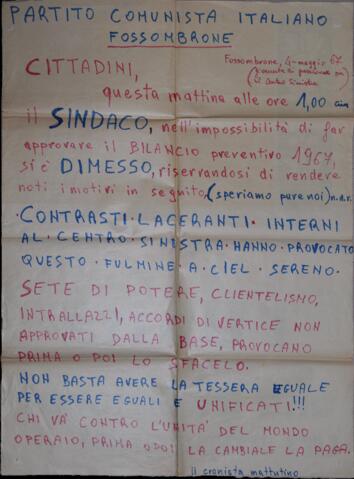 PARTITO COMUNISTA ITALIANO
FOSSOMBRONE
Fossombrone, 4-maggio 67
CITTADINI,
il Centro Sinistra
questa mattina alle ore 1,00
il SINDACO, nell'impossibilità di far
approvare il BILANCIO preventivo 1967,
si è DIMESSO, riservandosi di rendere
noti i motivi in seguito, (speriamo pure noi) n.d.r.
CONTRASTI·LACERANTI·INTERNI
AL·CENTRO·SINISTRA·HANNO·PROVOCATO
QUESTO·FULMINE·A·CIEL·SERENO.
SETE DI POTERE, CLIENTELISMO,
INTRALLAZZI, ACCORDI DI VERTICE NON
APPROVATI DALLA BASE, PROVOCANO
PRIMA O POI LO SFACELO.
NON BASTA AVERE LA TESSERA EGUALE
PER ESSERE EGUALI E UNIFICATI!!!
CHI VÀ CONTRO L'UNITÀ DEL MONDO
OPERAIO, PRIMA O POI LA CAMBIALE LA PAGA.
il cronista mattutino